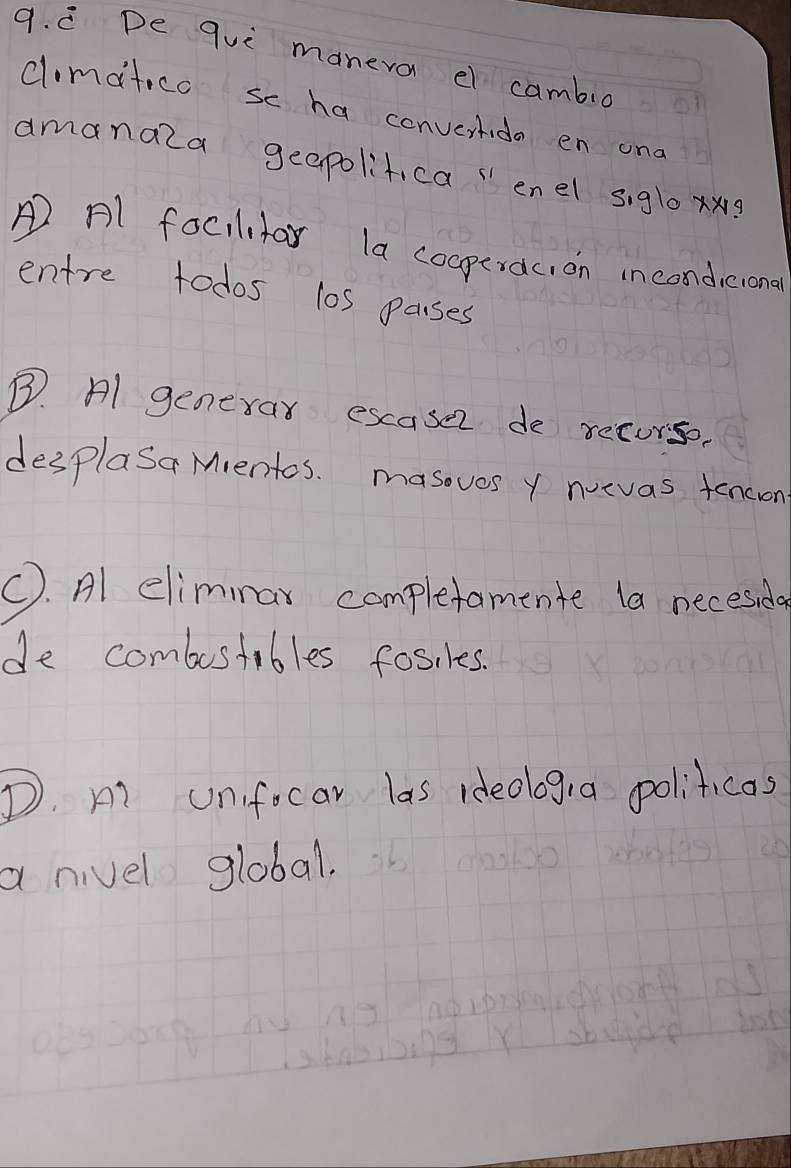 9. ¿ De qué manera el cambio
climático se ha convertido en una
amanaza geapolitica "en el siglo XXI?
A) Al facilitar la cooperación incondicional
entre todos los paises
B. Al generar escasez de recurso,
desplasaMientos. masovos y nuevas tencion
C). Al eliminar completamente la necesida
de combustibles fosiles.
D. Al unificar las ideologia politicas
a nivel global.